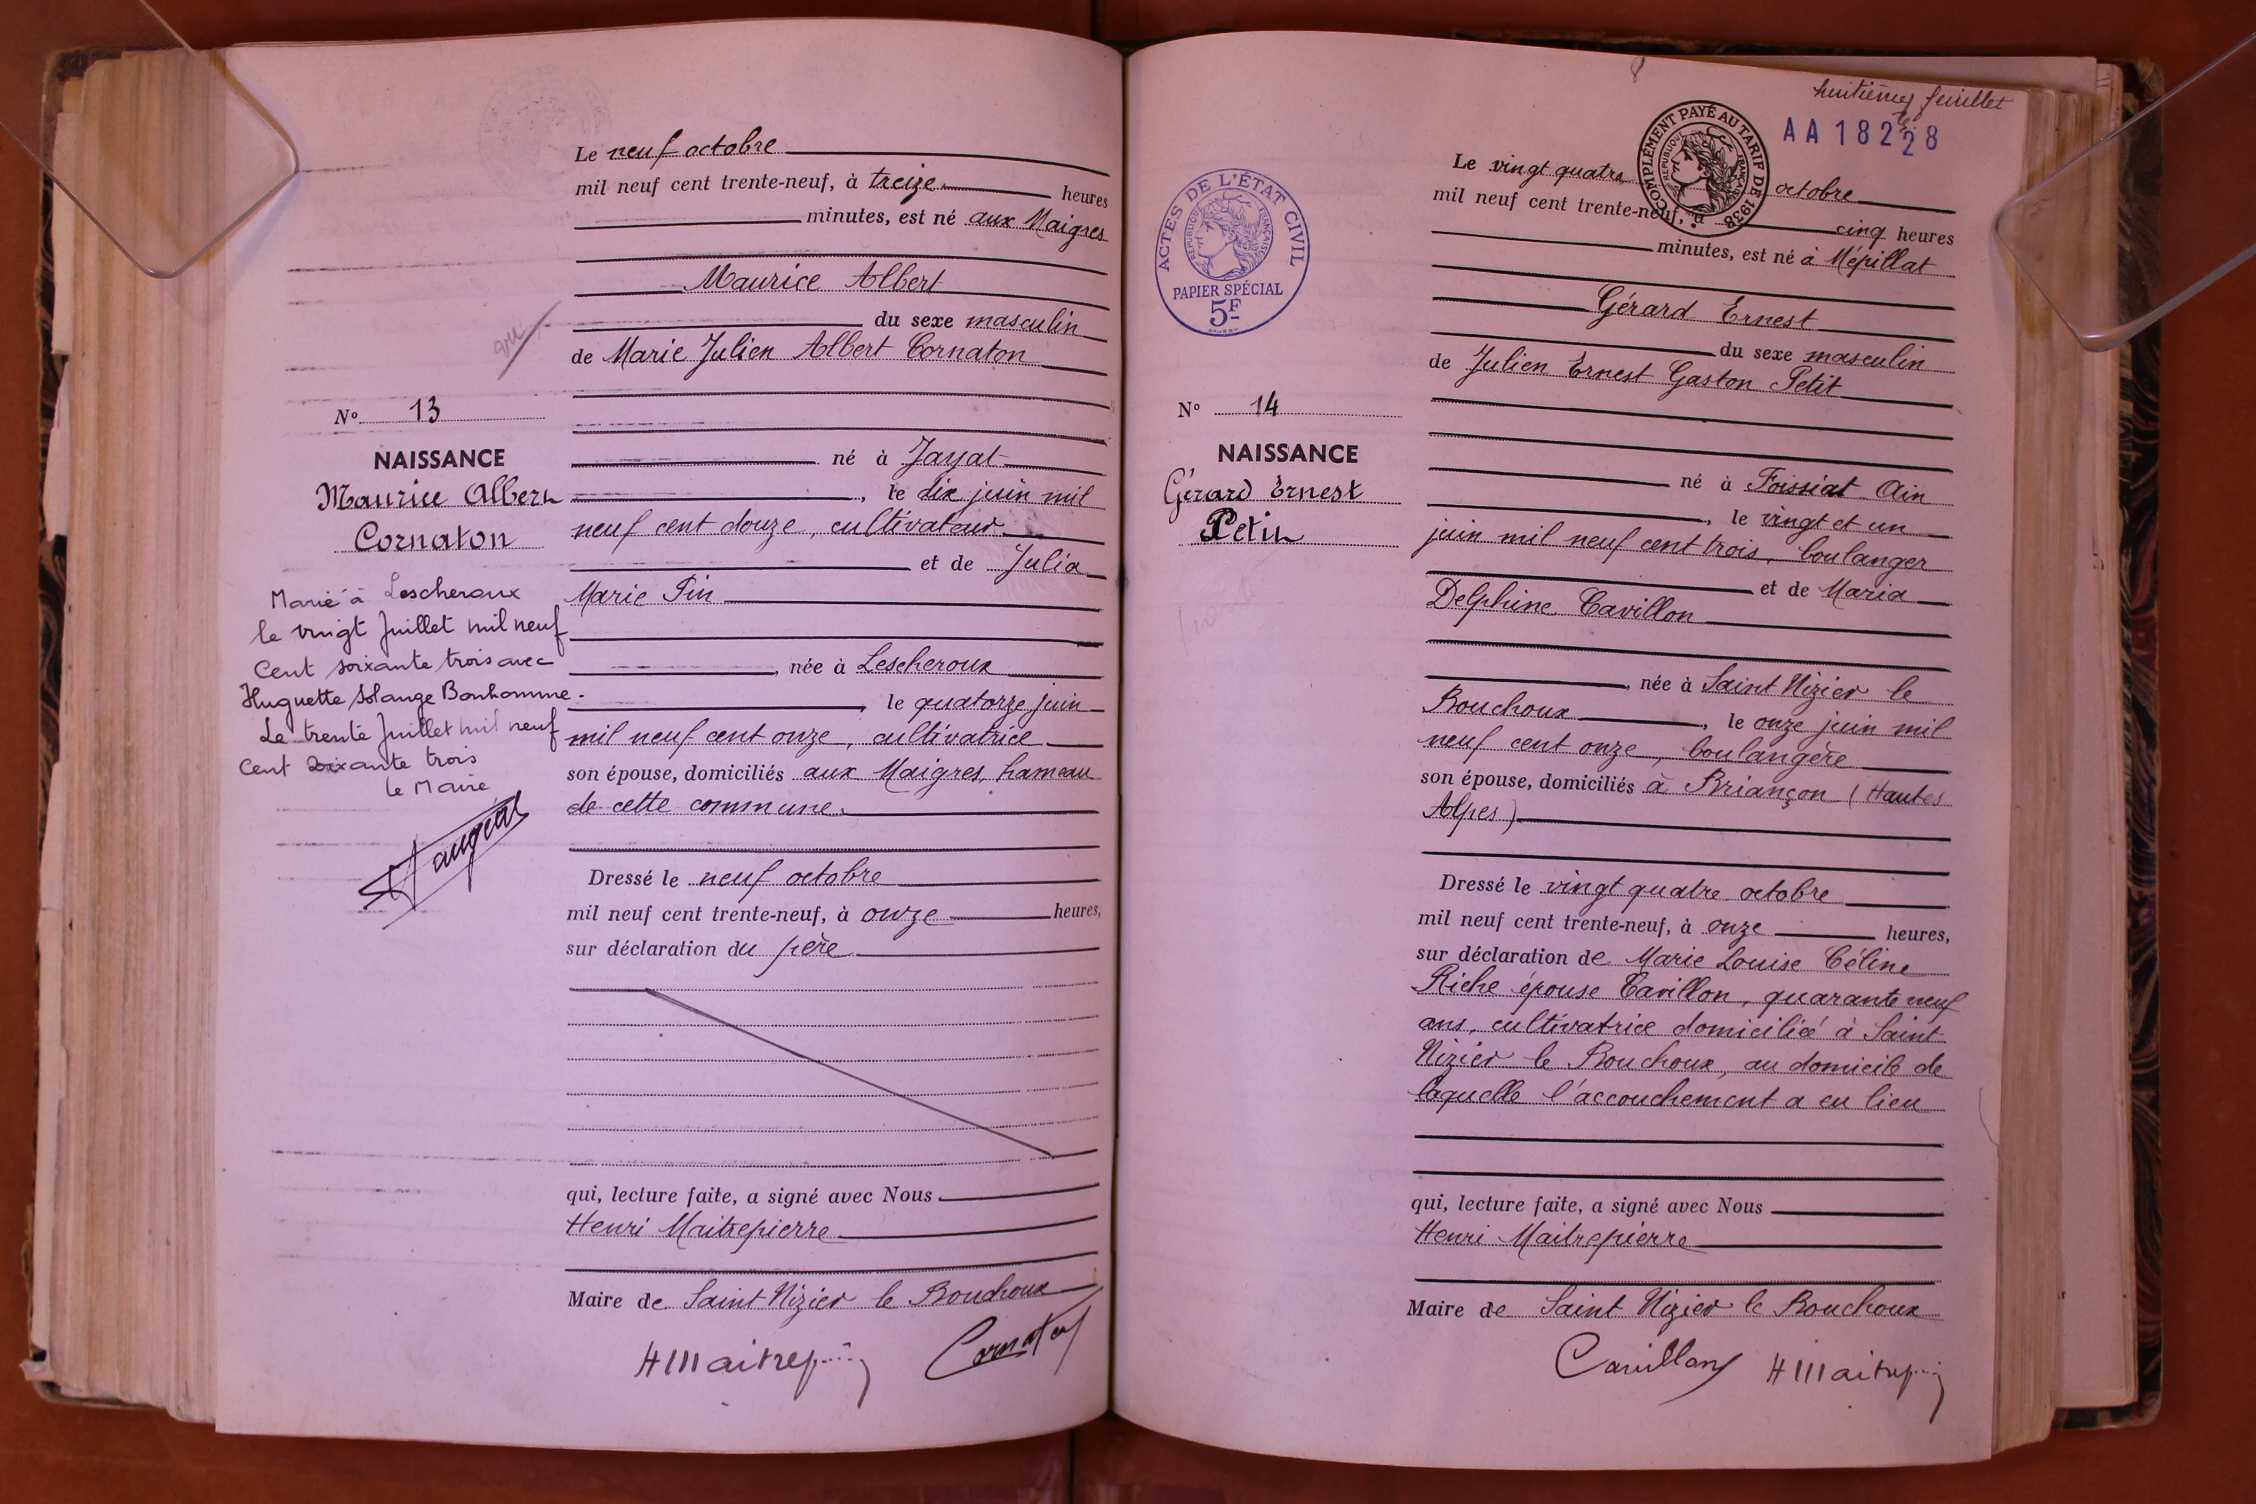 Le neuf octobre
mil neuf cent trente-neuf, à treize heures
minutes, est né aux Maigres
Maurice Albert
du sexe masculin
de Marie Julien Albert Cornaton
né à Jayat
, le dix juin mil
neuf cent douze, cultivateur
et de Julia
Marie Pin
, née à Lescheroux
, le quatorze juin
mil neuf cent onze, cultivatrice
son épouse, domiciliés aux Maigres, hameau
de cette commune
Dressé le neuf octobre
mil neuf cent trente-neuf, à onze heures,
sur déclaration du père
qui, lecture faite, a signé avec Nous
Henri Maitrepierre
Maire de Saint Nizier le Bouchoux
HMaitrep Cornaton
No 13
NAISSANCE
Maurice Albert
Cornaton
Marié à Lescheroux
le vingt Juillet mil neuf
Cent soixante trois avec
Huguette Solange Bonhomme.
Le trente Juillet mil neuf
Cent soixante trois
le Maire
8
huitième feuillet
AA 18228
COMPLÉMENT PAYÉ AU TARIF DE 1938
RÉPUBLIQUE FRANÇAISE
ACTES DE L'ÉTAT CIVIL
RÉPUBLIQUE FRANÇAISE
PAPIER SPÉCIAL
5F
No 14
NAISSANCE
Gérard Ernest
Petit
Le vingt quatre octobre
mil neuf cent trente-neuf, à cinq heures
minutes, est né à Mépillat
Gérard Ernest
du sexe masculin
de Julien Ernest Gaston Petit
né à Foissiat Ain
, le vingt et un
juin mil neuf cent trois, boulanger
et de Maria
Delphine Cavillon
, née à Saint Nizier le
Bouchoux, le onze juin mil
neuf cent onze, boulangère
son épouse, domiciliés à Briançon (Hautes
Alpes)
Dressé le vingt quatre octobre
mil neuf cent trente-neuf, à onze heures,
sur déclaration de Marie Louise Céline
Riche épouse Cavillon, quarante neuf
ans, cultivatrice domiciliée à Saint
Nizier le Bouchoux, au domicile de
laquelle l'accouchement a eu lieu
qui, lecture faite, a signé avec Nous
Henri Maitrepierre
Maire de Saint Nizier le Bouchoux
Cavillon HMaitrep